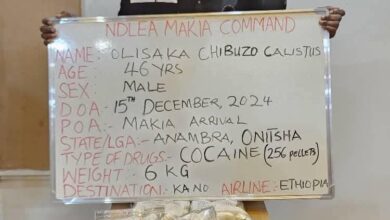 NDLEA MAKIA COMMAND
NAME:- OLISAKA CHIBUZO CALISTUS
AGE:- 46 YRS
SEX:- MALE
D.O.A:- 15TH DECEMBER, 2024
P.O.A:- MAKIA ARRIVAL
STATE/LGA:- ANAMBRA, ONITSHA
TYPE OF DRUGS:- COCAINE (256 PELLETS)
WEIGHT:- 6 KG
DESTINATION:- KANO AIRLINE:- ETHIOPIA